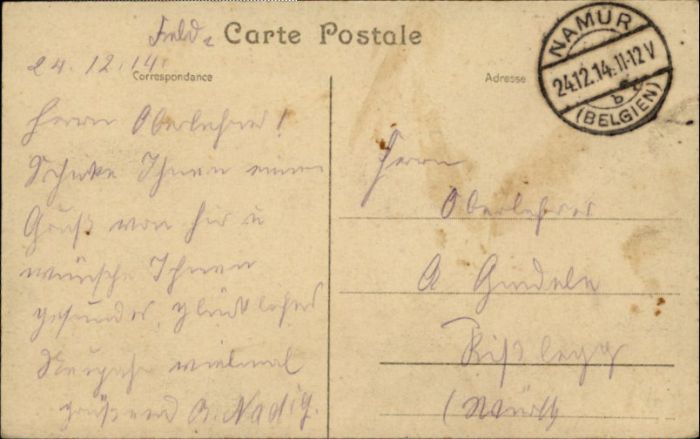 Feld-
Carte Postale
24.12.14.
Correspondance
Adresse
NAMUR
24.12.14.11-12V
b
(BELGIEN)
Herrn Oberlehrer!
Schicke Ihnen einen
Gruß von hir u
wünsche Ihnen
gesundes, glückliches
Neujahr vielmal
grüßend A. Nadig.
Herrn
Oberlehrer
A Gindele
Kißlegg
(Württ